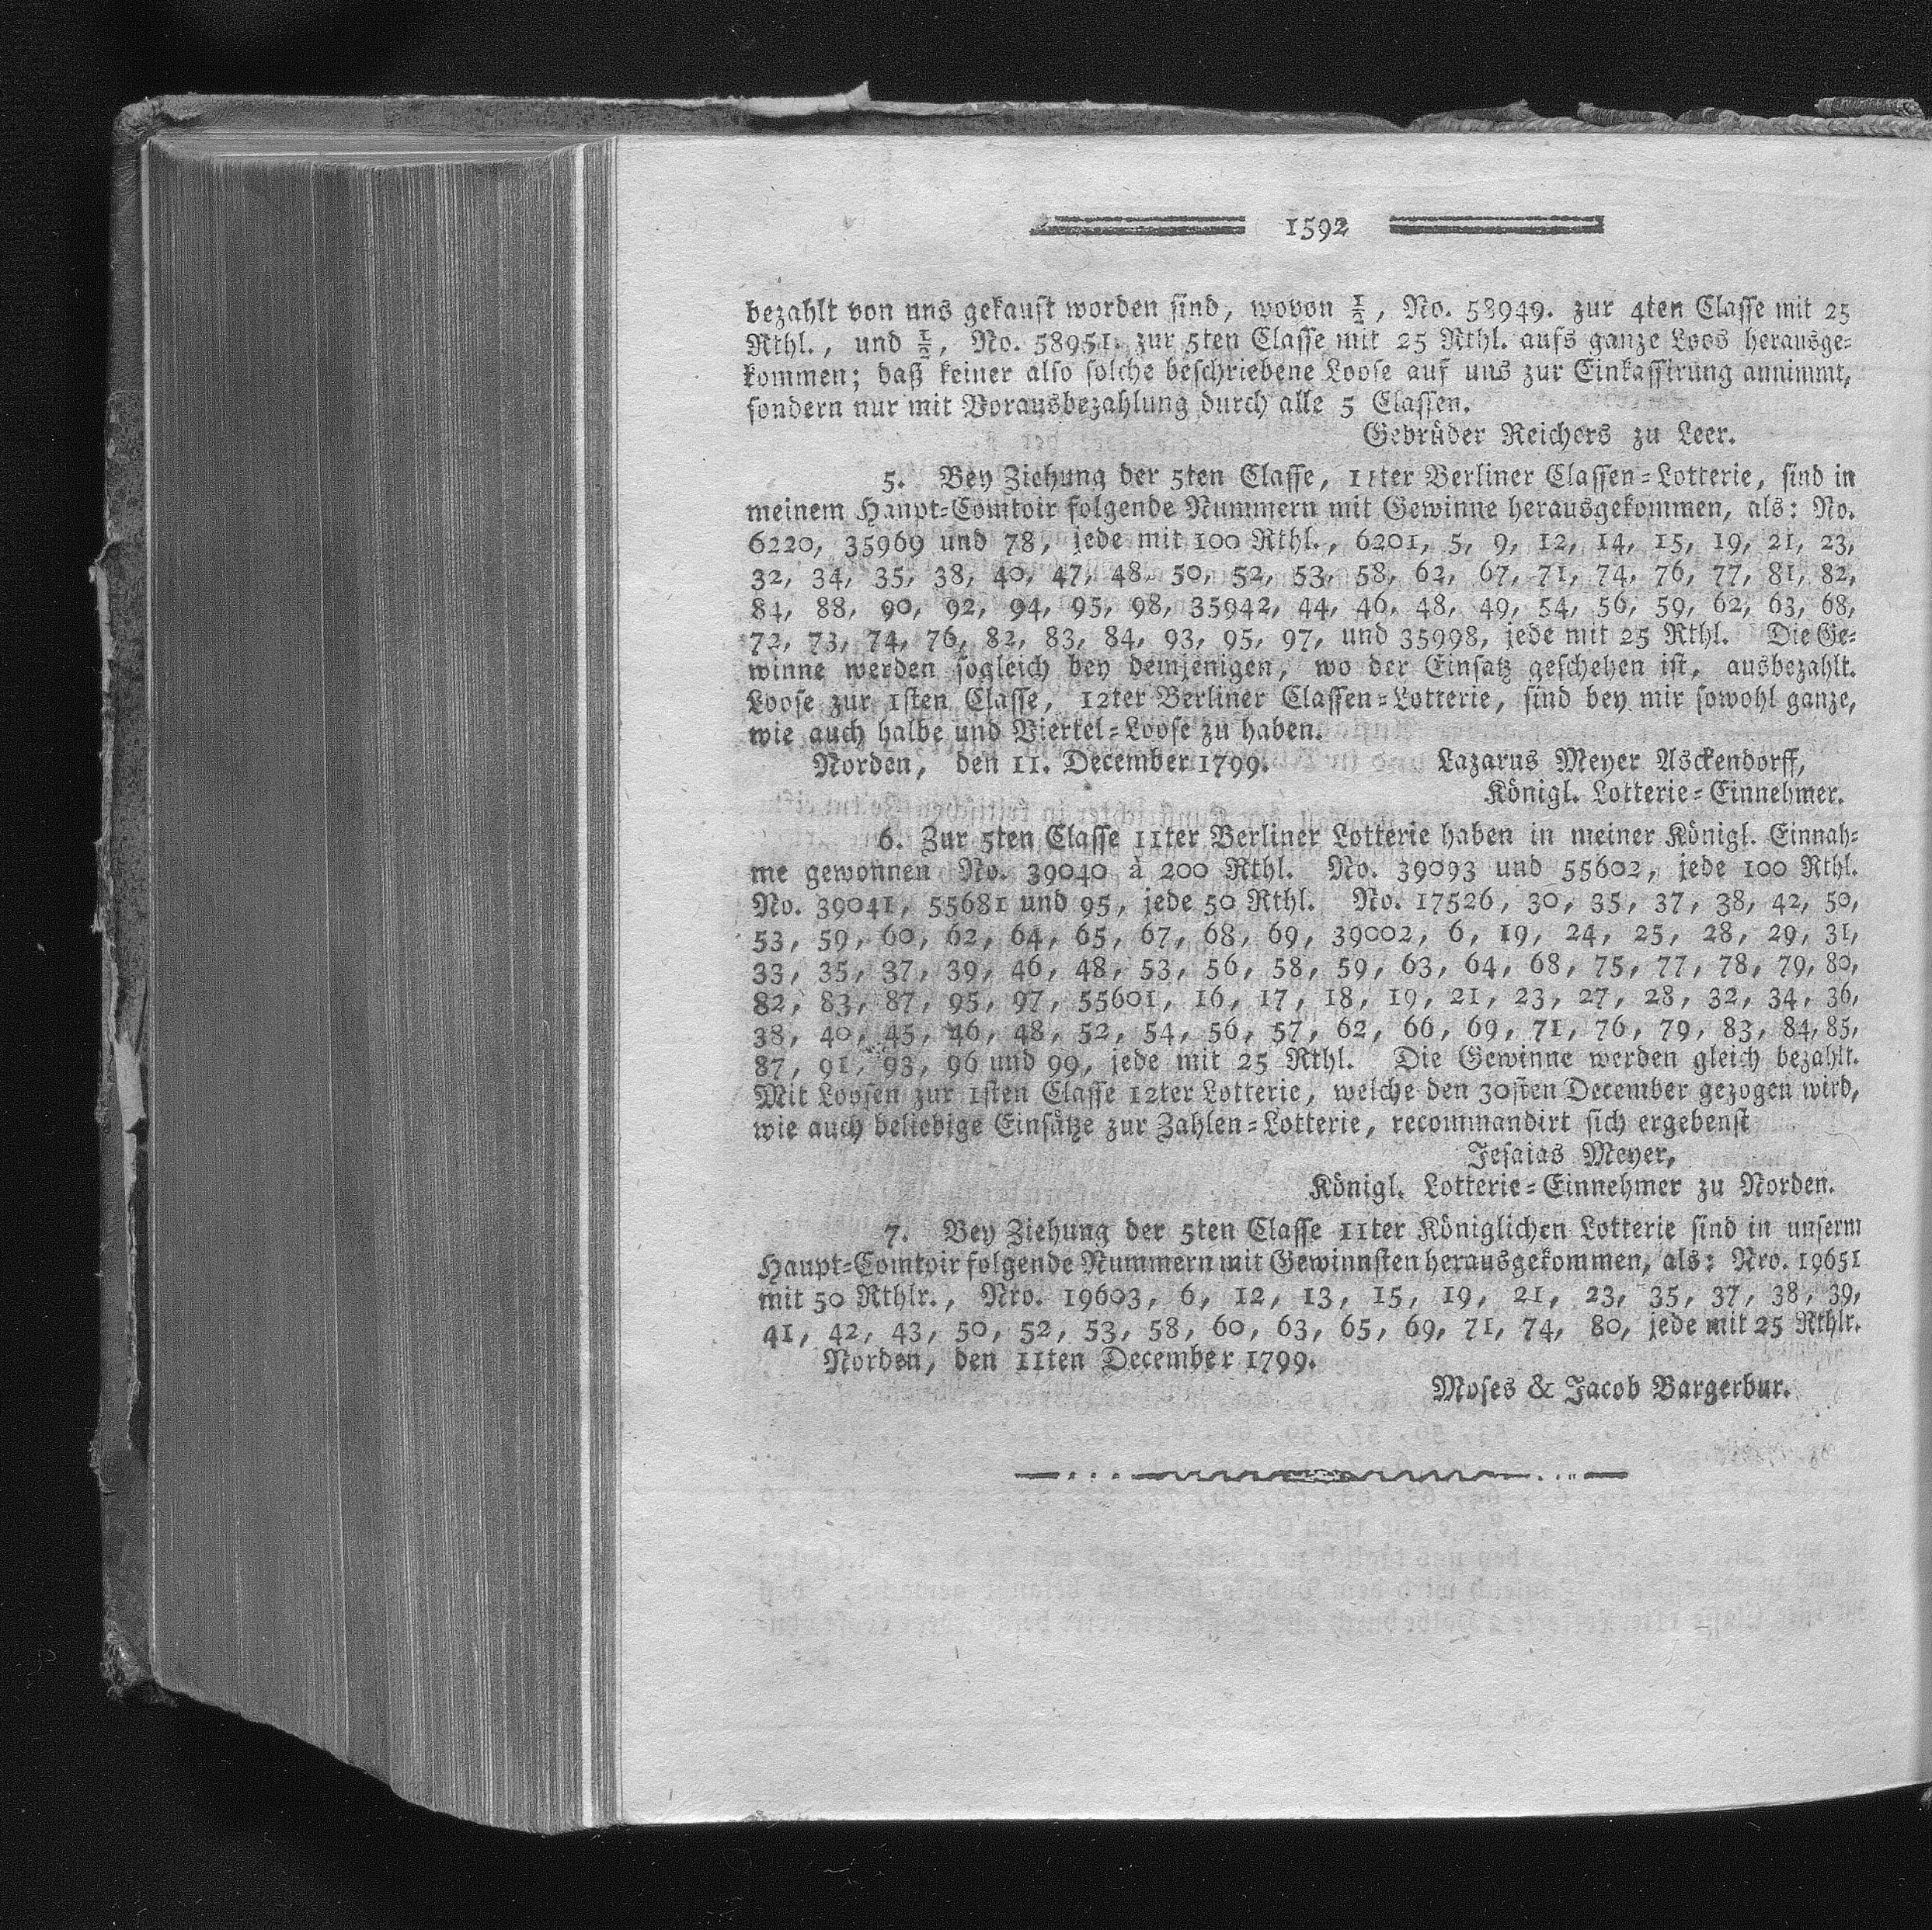 1592
bezahlt von uns gekauft worden sind, wovon ½, No. 58949. zur 4ten Classe mit 25
Rthl., und ½, No. 58951. zur 5ten Classe mit 25 Rthl. aufs ganze Loos herausge-
kommen; daß keiner also solche beschriebene Loose auf uns zur Einkassirung annimmt,
sondern nur mit Vorausbezahlung durch alle 5 Classen.
Gebrüder Reichers zu Leer.
5. Bey Ziehung der 5ten Classe, 11ter Berliner Classen-Lotterie, sind in
meinem Haupt-Comtoir folgende Nummern mit Gewinne herausgekommen, als: No.
6220, 35969 und 78, jede mit 100 Rthl., 6201, 5, 9, 12, 14, 15, 19, 21, 23,
32, 34, 35, 38, 40, 47, 48, 50, 52, 53, 58, 62, 67, 71, 74, 76, 77, 81, 82,
84, 88, 90, 92, 94, 95, 98, 35942, 44, 46, 48, 49, 54, 56, 59, 62, 63, 68,
72, 73, 74, 76, 82, 83, 84, 93, 95, 97, und 35998, jede mit 25 Rthl. Die Ge-
winne werden sogleich bey demjenigen, wo der Einsatz geschehen ist, ausbezahlt.
Loose zur 1sten Classe, 12ter Berliner Classen-Lotterie, sind bey mir sowohl ganze,
wie auch halbe und Viertel-Loose zu haben.
Norden, den 11. December 1799. Lazarus Meyer Asckendorff,
Königl. Lotterie-Einnehmer.
6. Zur 5ten Classe 11ter Berliner Lotterie haben in meiner Königl. Einnah-
me gewonnen No. 39040 à 200 Rthl. No. 39093 und 55602, jede 100 Rthl.
No. 39041, 55681 und 95, jede 50 Rthl. No. 17526, 30, 35, 37, 38, 42, 50,
53, 59, 60, 62, 64, 65, 67, 68, 69, 39002, 6, 19, 24, 25, 28, 29, 31,
33, 35, 37, 39, 46, 48, 53, 56, 58, 59, 63, 64, 68, 75, 77, 78, 79, 80,
82, 83, 87, 95, 97, 55601, 16, 17, 18, 19, 21, 23, 27, 28, 32, 34, 36,
38, 40, 45, 46, 48, 52, 54, 56, 57, 62, 66, 69, 71, 76, 79, 83, 84, 85,
87, 91, 93, 96 und 99, jede mit 25 Rthl. Die Gewinne werden gleich bezahlt.
Mit Loosen zur 1sten Classe 12ter Lotterie, welche den 30sten December gezogen wird,
wie auch beliebige Einsätze zur Zahlen-Lotterie, recommandirt sich ergebenst
Jesaias Meyer,
Königl. Lotterie-Einnehmer zu Norden.
7. Bey Ziehung der 5ten Classe 11ter Königlichen Lotterie sind in unserm
Haupt-Comtoir folgende Nummern mit Gewinnsten herausgekommen, als: Nro. 19651
mit 50 Rthlr., Nro. 19603, 6, 12, 13, 15, 19, 21, 23, 35, 37, 38, 39,
41, 42, 43, 50, 52, 53, 58, 60, 63, 65, 69, 71, 74, 80, jede mit 25 Rthlr.
Norden, den 11ten December 1799.
Moses & Jacob Bargerbur.